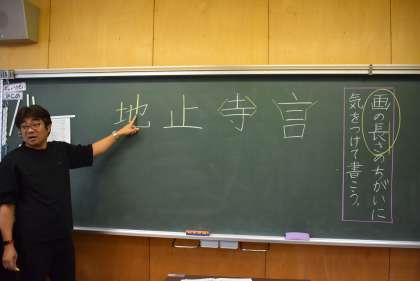 画の長さのちがいに
気をつけて書こう。
言
寺
止
地